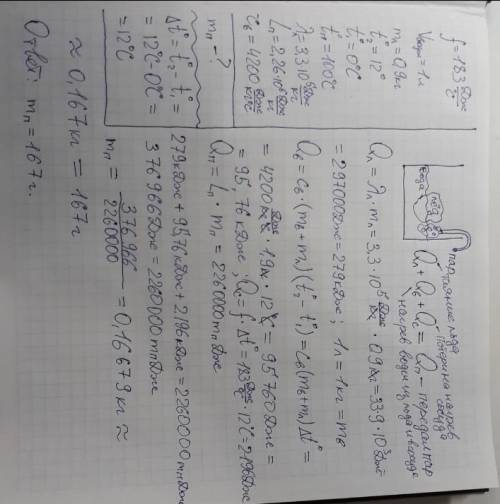 f = 183 Дж/°C
Vводы = 1л
mл = 0,9кг
t₂° = 12°
t₁° = 0°C
tп° = 100°C
λл = 3,3·10⁵ Дж/кг
Lп = 2,26·10⁶ Дж/кг
cв = 4200 Дж/кг°C
mп - ?
Δt° = t₂° - t₁° =
= 12°C - 0°C =
= 12°C
вода
лёд
пар
таяние льда
потери на нагрев сосуда
Qл + Qв + Qс = Qп - передал пар
нагрев воды из льда и в сосуде
Qл = λл · mл = 3,3 · 10⁵ Дж/кг · 0,9 кг = 339 · 10³ Дж
= 297000 Дж = 279 кДж ; 1л = 1кг = mв
Qв = cв · (mв + mл)(t₂° - t₁°) = cв(mв + mл)Δt° =
= 4200 Дж/кг°C · 1,9 кг · 12°C = 95760 Дж =
= 95,76 кДж ; Qс = f · Δt° = 183 Дж/°C · 12°C = 2,196 кДж
Qп = Lп · mп = 2260000 mп Дж
279 кДж + 95,76 кДж + 2,196 кДж = 2260000 mп Дж
376966 Дж = 2260000 mп Дж
mп = 376966/2260000 = 0,16679 кг ≈
≈ 0,167 кг = 167 г
Ответ: mп = 167 г.